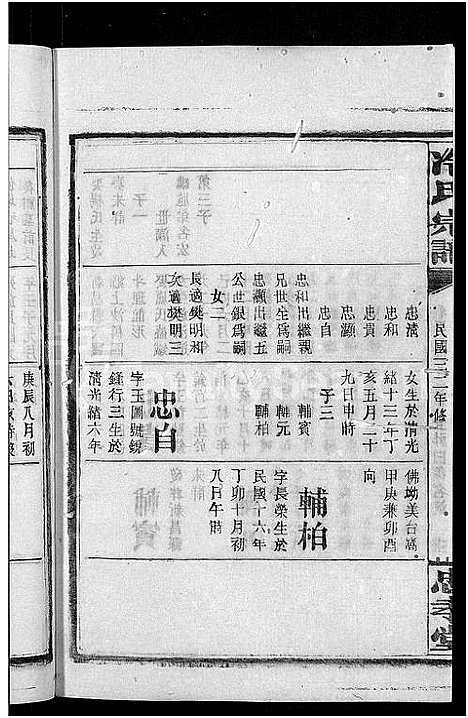 氏宗譜
民國三十一年修
忠孝堂
忠清
忠和
忠貴
忠灝
忠自
忠和出繼親
兄世生爲嗣
忠灝出繼五
公世銀爲嗣
女二
長適樊明相
次適樊明三
女生於清光
緒十三年丁
亥五月二十
九日申時
子三
輔賓
輔元
輔柏
忠自
字玉圖號錦
鍾行三生於
清光緒六年
佛坳美台嵩
甲庚兼卯酉
向
輔柏
字長榮生於
民國十六年
丁卯十月初
八日午時
庚辰八月初